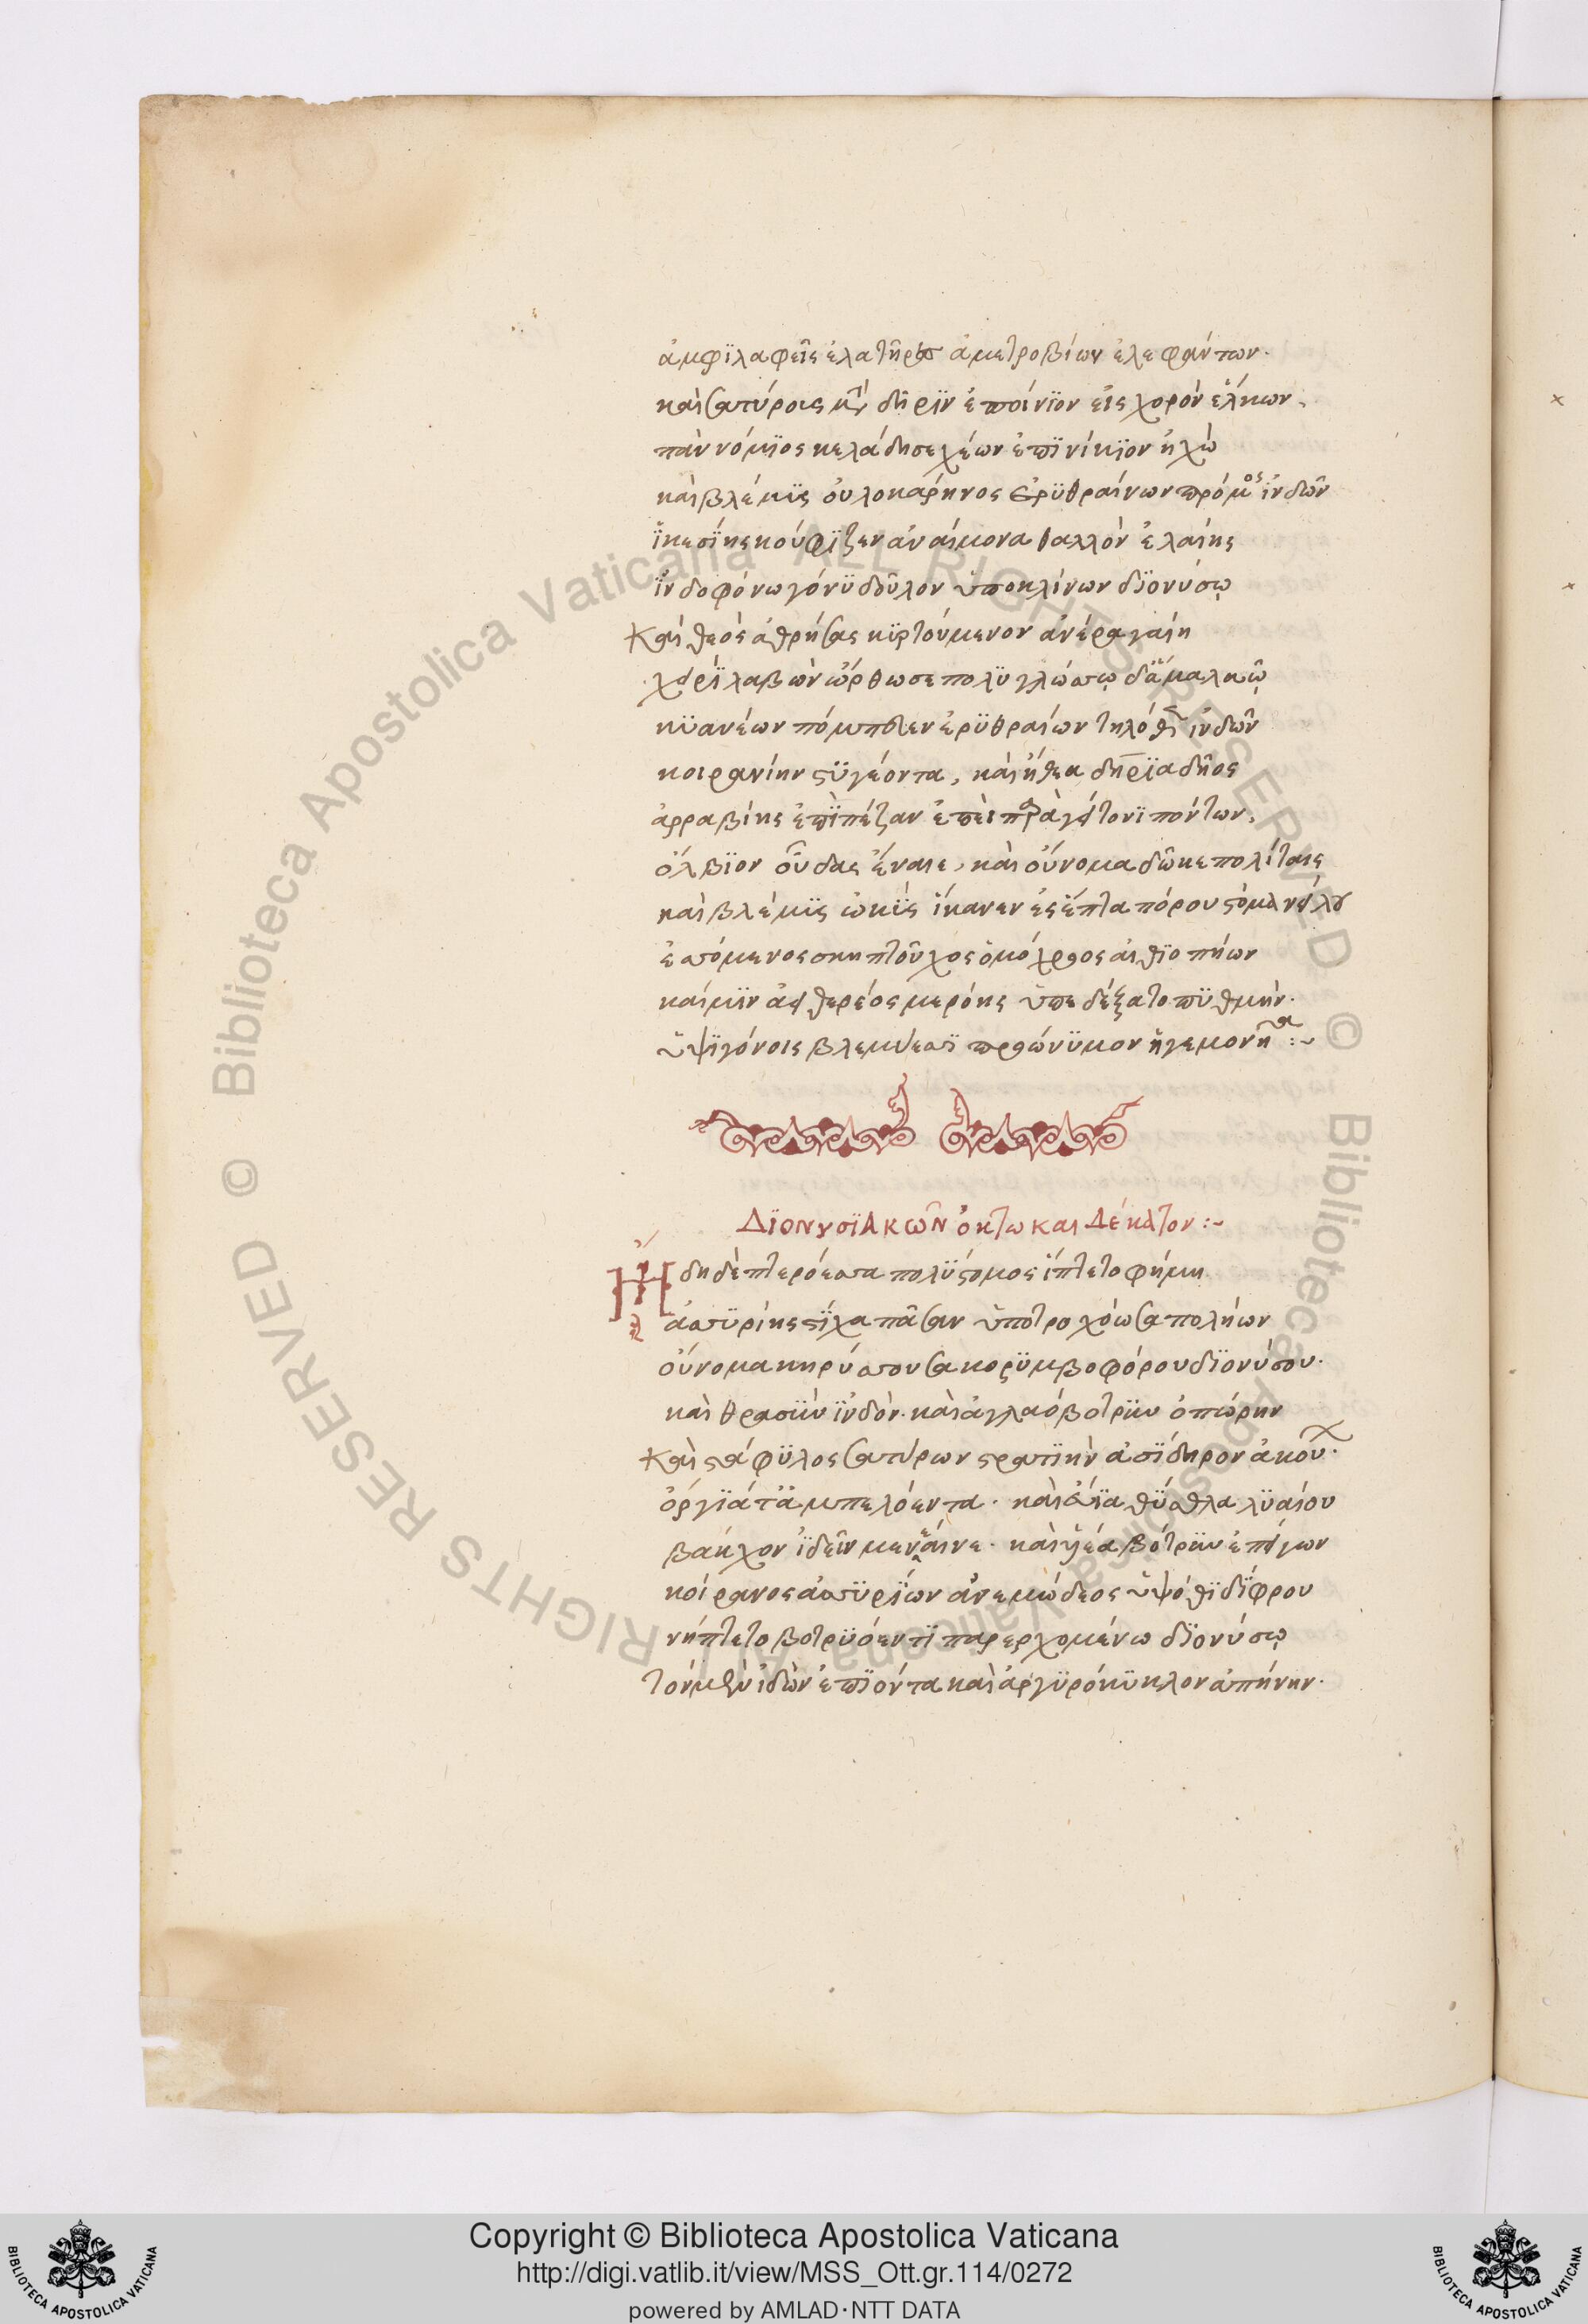 ἀμφϊλαφεῖς ἐλατῆρας ἀμετροβίων ἐλεφάντων.
καὶ σατύροις μετὰ δῆριν ἐποίνϊον εἰς χορὸν ἕλκων.
πὰν νόμϊος κελάδησε χέων ἐπϊνίκϊον ἠχώ
καὶ βλέμϊς οὐλοκάρηνος ἐρϋθραίνων πρόμος ἰνδῶν
ἱκεσΐης κούφϊζεν ἀναίμονα θαλλὸν ἐλαίης
ἰνδοφόνω γόνϋ δοῦλον ὑποκλίνων δϊονύσῳ
Καὶ θεὸς ἀθρήσας κϋρτούμενον ἀνέρα γαίη
χειρὶ λαβὼν ὤρθωσε πολϋγλώσσῳ δ' ἅμα λαῷ
κϋανέων πόμπευεν ἐρϋθραίων τηλόθι ἰνδῶν
κοιρανίην στϋγέοντα, καὶ ἤθεα δηρϊαδῆος
ἀρραβίης ἐπὶ πέζαν ἐπεὶ παρὰ γείτονϊ πόντων.
ὄλβϊον οὖδας ἔναιε, καὶ οὔνομα δῶκε πολίταις
καὶ βλέμϊς ὠκὺς ἵκανεν ἐς ἑπταπόρου στόμα νείλου
ἐσσόμενος σκηπτοῦχος ὁμόχροος αἰθϊοπήων
καί μϊν ἀειθερέος μερόης ὑπεδέξατο πϋθμήν.
ὑψϊγόνοις βλεμύεσσϊ προώνϋμον ἡγεμονῆα :~
ΔΪΟΝΥσΪΑΚῶΝ ὀκτωκαιΔέκατον :~
Ἤδη δὲ πτερόεσσα πολϋστομος ἵπτετο φήμη
ἀσσϋρίης στίχα πᾶσαν ὑποτροχόωσα πολήων
οὔνομα κηρύσσουσα κορϋμβοφόρου δϊονύσου.
καὶ θρασὺν ἰνδὸν. καὶ ἀγλαόβοτρϋν ὀπώρην
Καὶ στάφϋλος σατύρων στρατϊὴν ἀσίδηρον ἀκούων.
ὄργϊά τ' ἀμπελόεντα. καὶ εὔϊα θύσθλα λϋαίου
βάκχον ἰδεῖν μενέαινε. καὶ ὑιέα βότρϋν ἐπείγων
κοίρανος ἀσσϋρίων ἀνεμώδεος ὑψόθϊ δίφρου
νήπτετο βοτρϋόεντϊ παρερχομένω δϊονύσῳ
τὸν μὲν ἰδὼν ἐπϊόντα καὶ ἀργϋρόκϋκλον ἀπήνην.
Copyright © Biblioteca Apostolica Vaticana
http://digi.vatlib.it/view/MSS_Ott.gr.114/0272
powered by AMLAD·NTT DATA
BIBLIOTECA APOSTOLICA VATICANA
BIBLIOTECA APOSTOLICA VATICANA
© Biblioteca Apostolica Vaticana ALL RIGHTS RESERVED
© Biblioteca Apostolica Vaticana ALL RIGHTS RESERVED